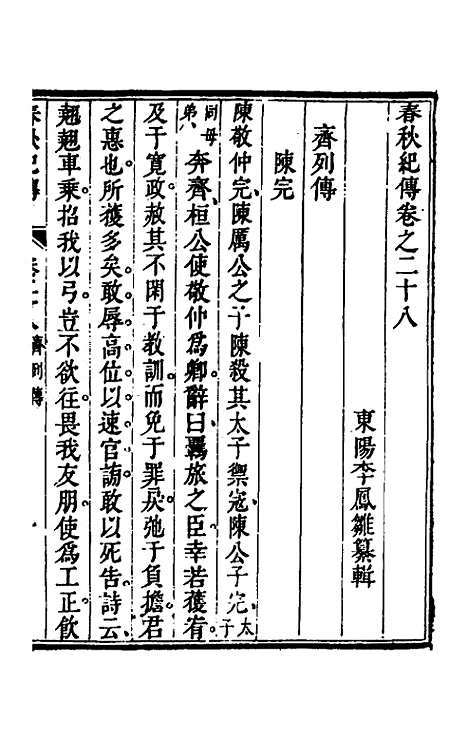 春秋紀傳卷之二十八
東陽李鳳雛纂輯
齊列傳
陳完
陳敬仲完陳厲公之子陳殺其太子禦寇陳公子完太子
同母弟奔齊桓公使敬仲為卿辭曰羈旅之臣幸若獲宥
及于寬政赦其不閑于教訓而免于罪戾弛于負擔君
之惠也所獲多矣敢辱高位以速官謗敢以死告詩云
翹翹車乘招我以弓豈不欲往畏我友朋使為工正飲
春秋紀傳 卷二十八 齊列傳